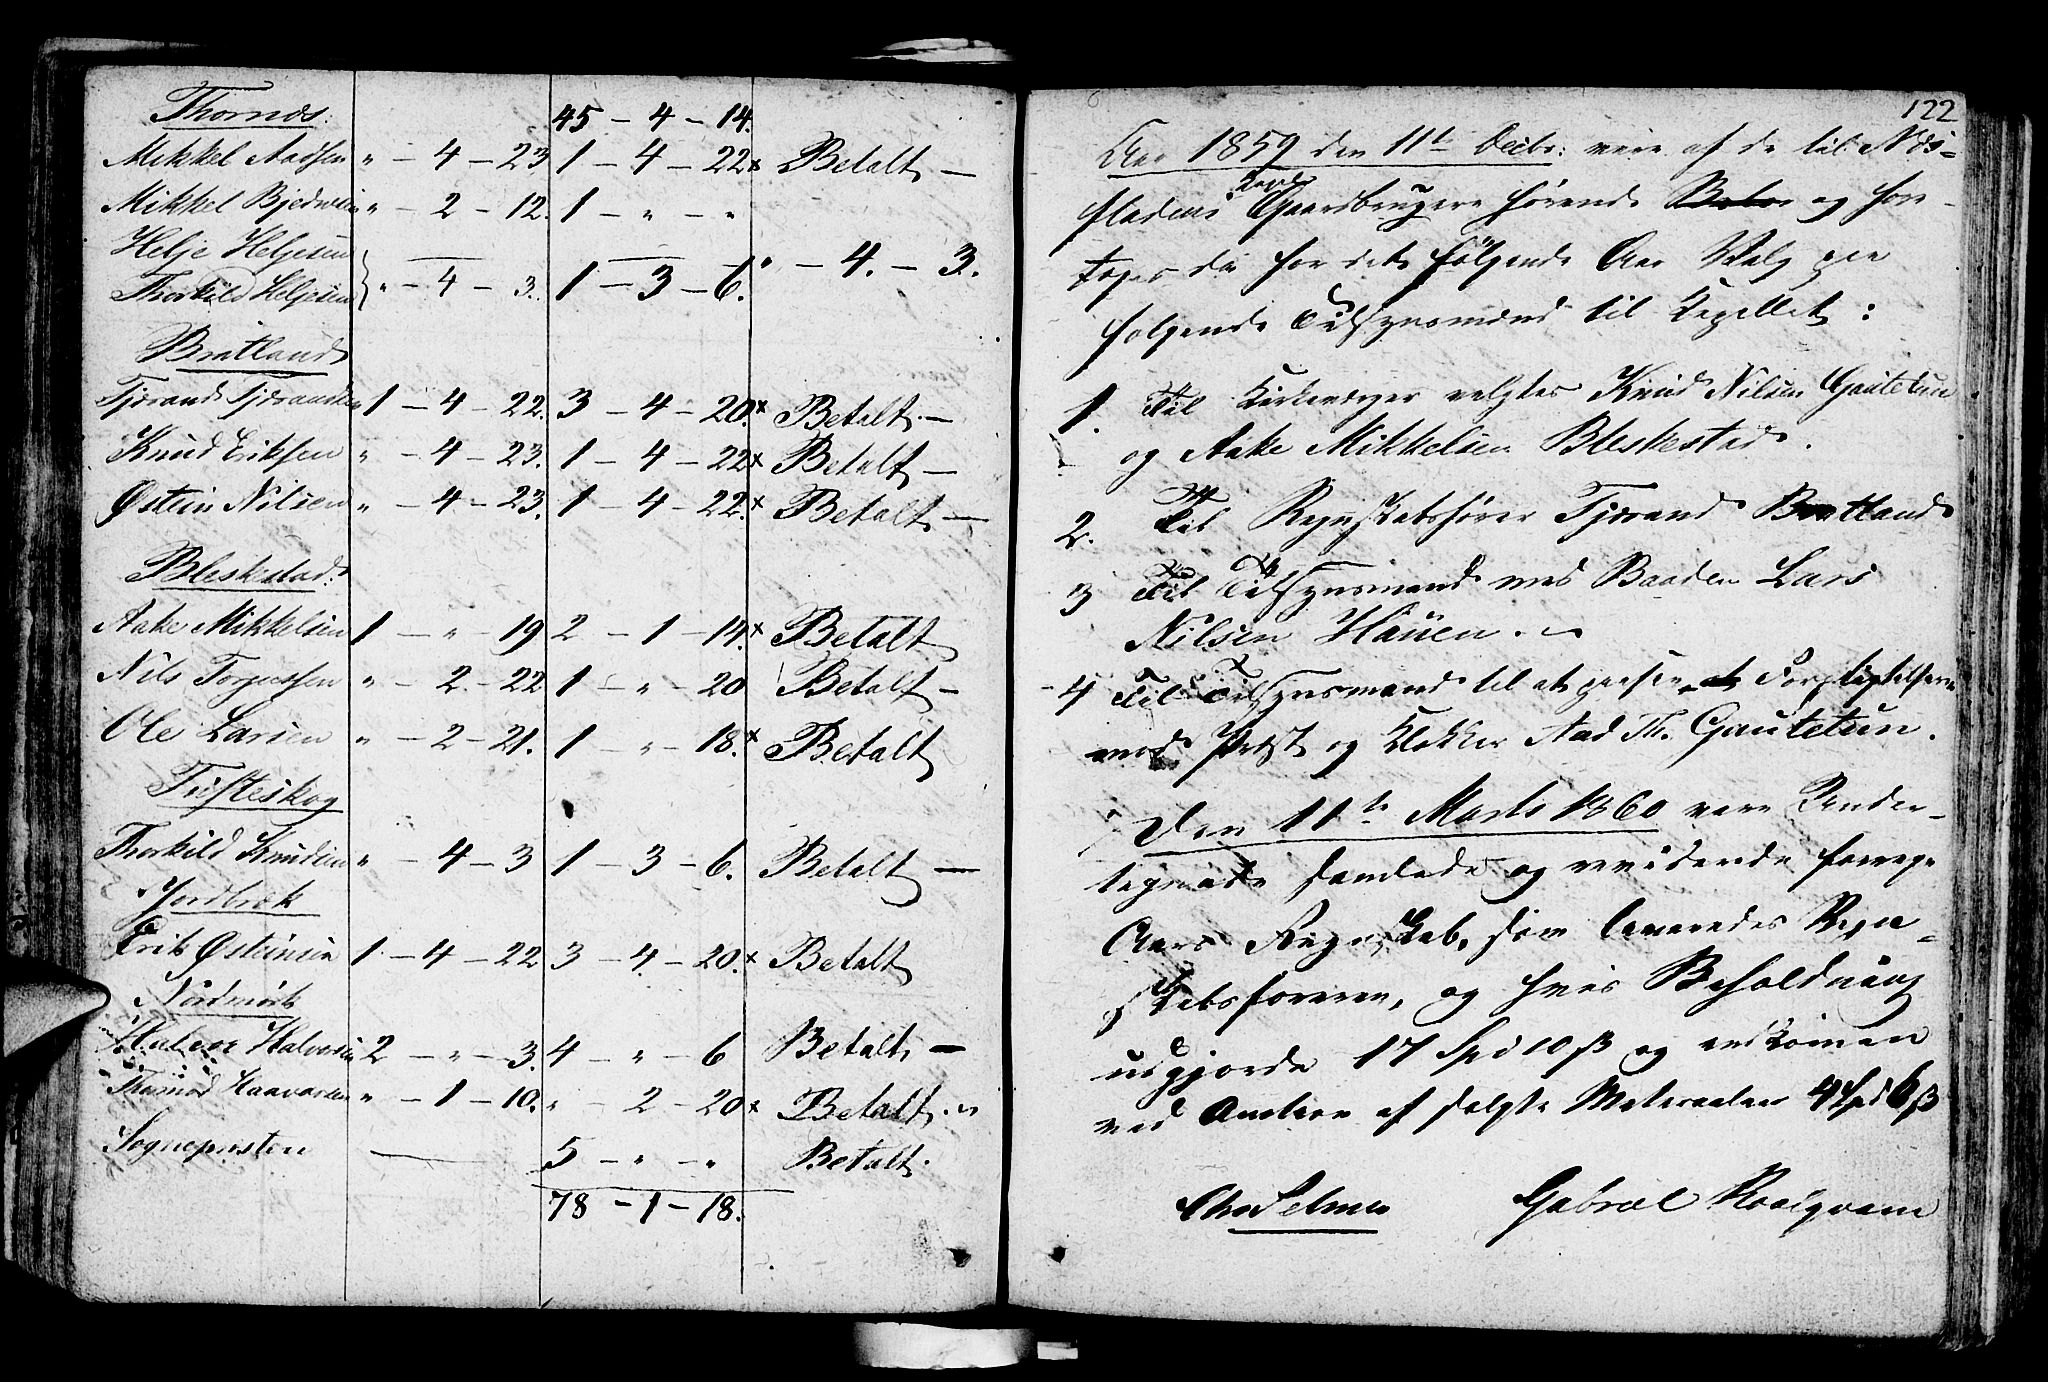 Thornæs.
45 - 4 - 14.
Mikkel Aadsen " - 4 - 23 1 - 4 - 22 x Betalt -
Mikkel Bjednsen " - 2 - 12. 1 - " - "
Helje Heljesen
Thorkild Heljesen } " - 4 - 3. 1 - 3 - 6. " - 4. - 3.
Bratland
Tjærand Tjærandsen 1 - 4 - 22. 3 - 4 - 20. x Betalt. -
Knud Eriksen " - 4 - 23. 1 - 4 - 22 x Betalt -
Østein Nilsen " - 4 - 23. 1 - 4 - 22. x Betalt -
Bleskestad.
Aake Mikkelsen 1 - " - 19 2 - 1 - 14. x Betalt
Nils Torgessen " - 2 - 22 1 - " - 20 Betalt -
Ole Larsen " - 2 - 21. 1 - " - 18. x Betalt
Tufteskog
Thorkild Knudsen " - 4 - 3 1 - 3 - 6. Betalt -
Jordbræk
Erik Østeinsen 1 - 4 - 22 3 - 4 - 20. x Betalt
Nordmork
Halvor Halvorsen 2 - " - 3. 4 - " - 6 Betalt -
Thormod Haavarsen " - 1 - 10. " - 2 - 20 x Betalt. "
Sognepresten - 5 - " - " Betalt.
78 - 1 - 18.
122
Aar 1859 den 11te Decbr: vare af de til Næs-
fladens Gaardbrugere hørende og fore-
toges da for det følgende Aar Valg paa
følgende Tilsynsmænd til Capellet:
1. Til Kirkeværger valgtes Knud Nilsen Gautetun
og Aake Mikkelsen Bleskestad.
2. Til Regnskabsfører Tjærand Bratland
3 Til Tilsynsmand med Baaden Lars
Nilsen Hauen. -
4 Til Tilsynsmand til at passe Forpligtelserne
mod Præst og Klokker Aad Th. Gautetun.
Den 11te Marts 1860 vare Under-
tegnede samlede og reviderede forrige
Aars Regnskab, som leveredes Regn-
skabsføreren, og hvis Beholdning
udgjorde 17 Spd 10 ß og indkomen
ved Auction af solgte Materialer 4 Spd 6 ß
Chr Selmer Gabriel Roalqvam